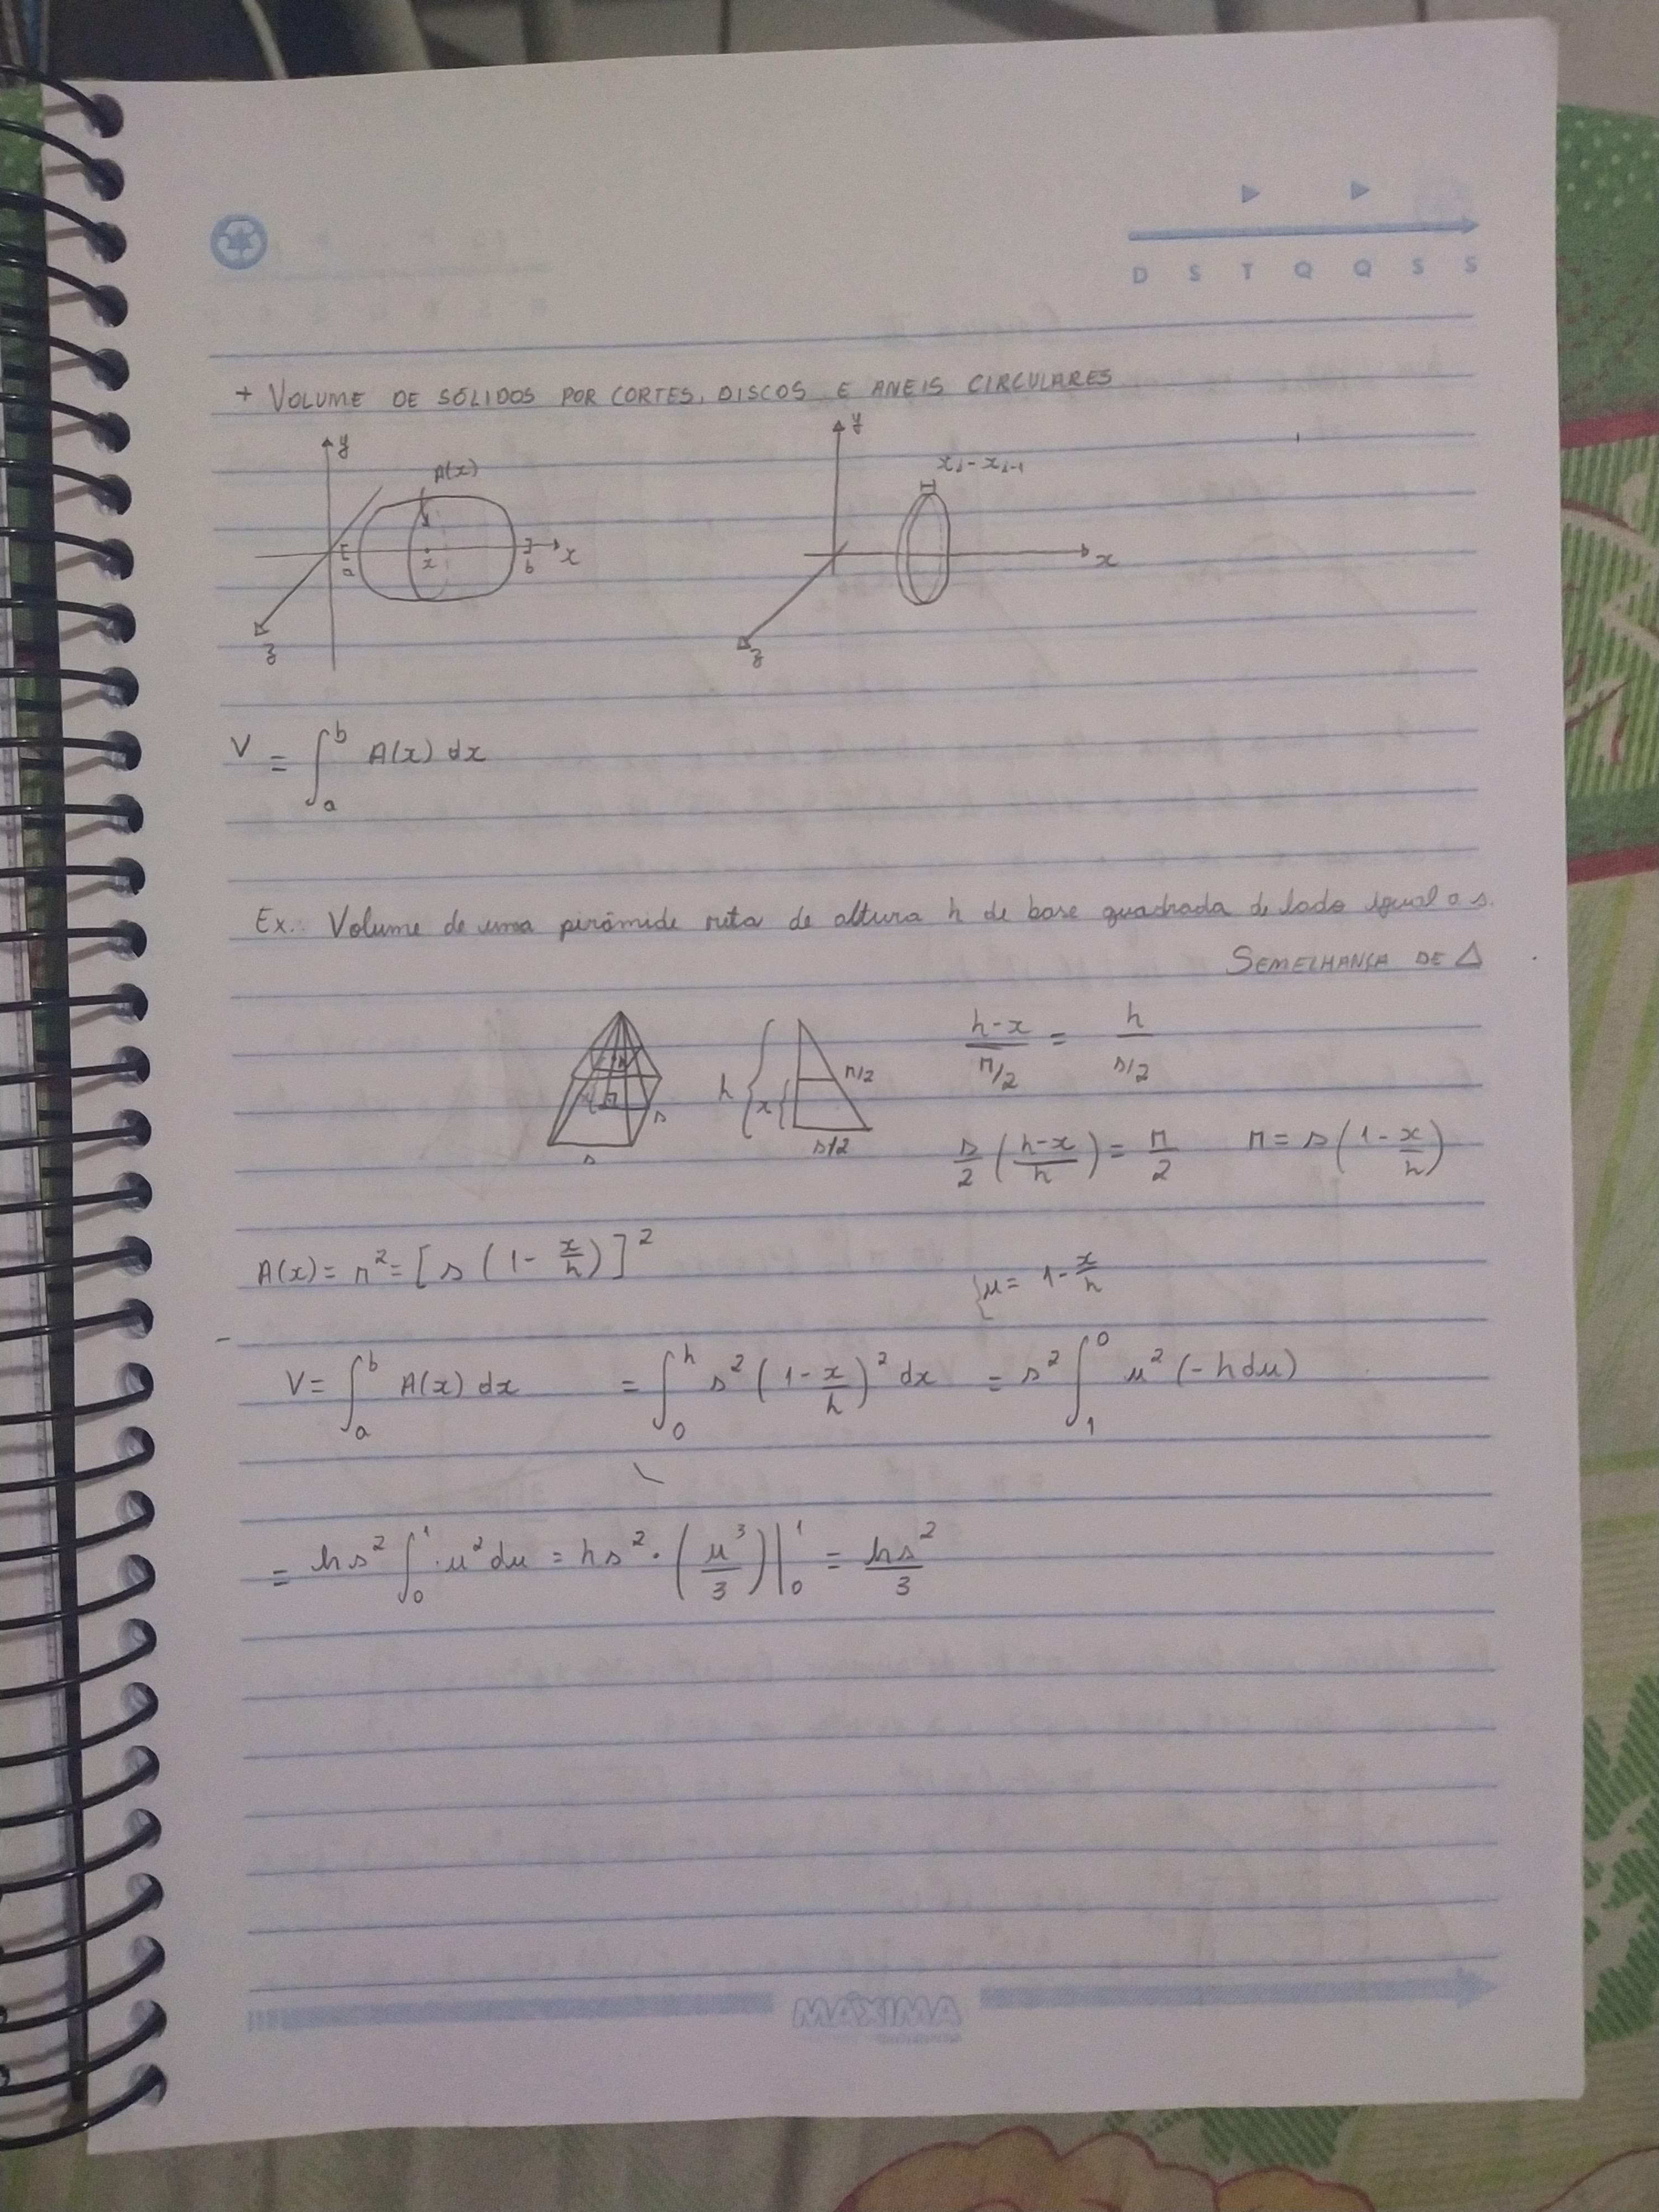 D S T Q Q S S
+ VOLUME DE SÓLIDOS POR CORTES, DISCOS E ANEIS CIRCULARES
y A(x) a x b x z
y x_i - x_{i-1} x z
V = ∫_a^b A(x) dx
Ex.: Volume de uma pirâmide reta de altura h de base quadrada de lado igual a s.
SEMELHANÇA DE Δ
s s h x r/2 s/2
(h-x)/(r/2) = h/(s/2)
s/2 ((h-x)/h) = r/2 r = s(1 - x/h)
A(x) = r² = [s(1 - x/h)]²
{u = 1 - x/h
V = ∫_a^b A(x) dx = ∫_0^h s²(1 - x/h)² dx = s² ∫_1^0 u² (-h du)
= hs² ∫_0^1 · u² du = hs² · (u³/3)|_0^1 = hs²/3
MÁXIMA